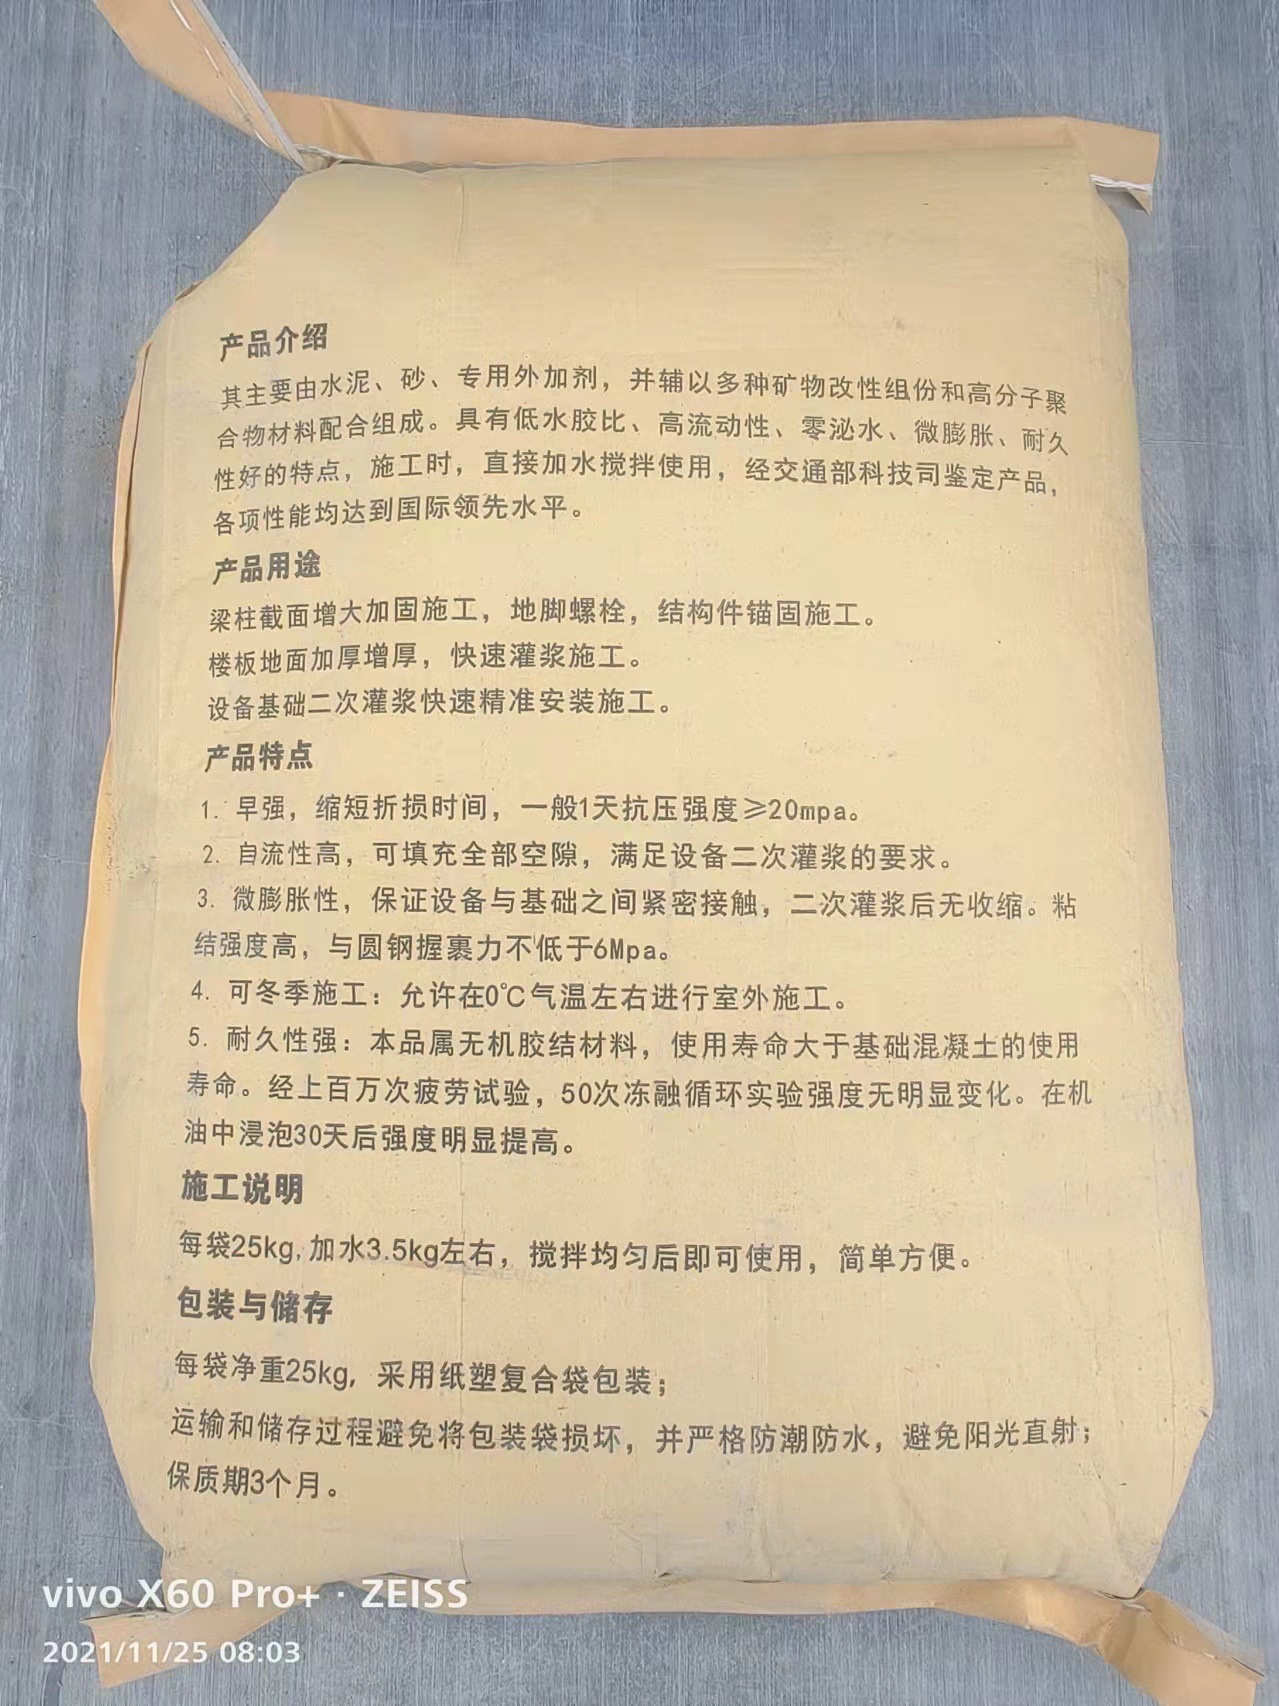 产品介绍
其主要由水泥、砂、专用外加剂，并辅以多种矿物改性组份和高分子聚
合物材料配合组成。具有低水胶比、高流动性、零泌水、微膨胀、耐久
性好的特点，施工时，直接加水搅拌使用，经交通部科技司鉴定产品，
各项性能均达到国际领先水平。
产品用途
梁柱截面增大加固施工，地脚螺栓，结构件锚固施工。
楼板地面加厚增厚，快速灌浆施工。
设备基础二次灌浆快速精准安装施工。
产品特点
1. 早强，缩短折损时间，一般1天抗压强度≥20mpa。
2. 自流性高，可填充全部空隙，满足设备二次灌浆的要求。
3. 微膨胀性，保证设备与基础之间紧密接触，二次灌浆后无收缩。粘
结强度高，与圆钢握裹力不低于6Mpa。
4. 可冬季施工：允许在0℃气温左右进行室外施工。
5. 耐久性强：本品属无机胶结材料，使用寿命大于基础混凝土的使用
寿命。经上百万次疲劳试验，50次冻融循环实验强度无明显变化。在机
油中浸泡30天后强度明显提高。
施工说明
每袋25kg,加水3.5kg左右，搅拌均匀后即可使用，简单方便。
包装与储存
每袋净重25kg，采用纸塑复合袋包装；
运输和储存过程避免将包装袋损坏，并严格防潮防水，避免阳光直射；
保质期3个月。
vivo X60 Pro+ · ZEISS
2021/11/25 08:03